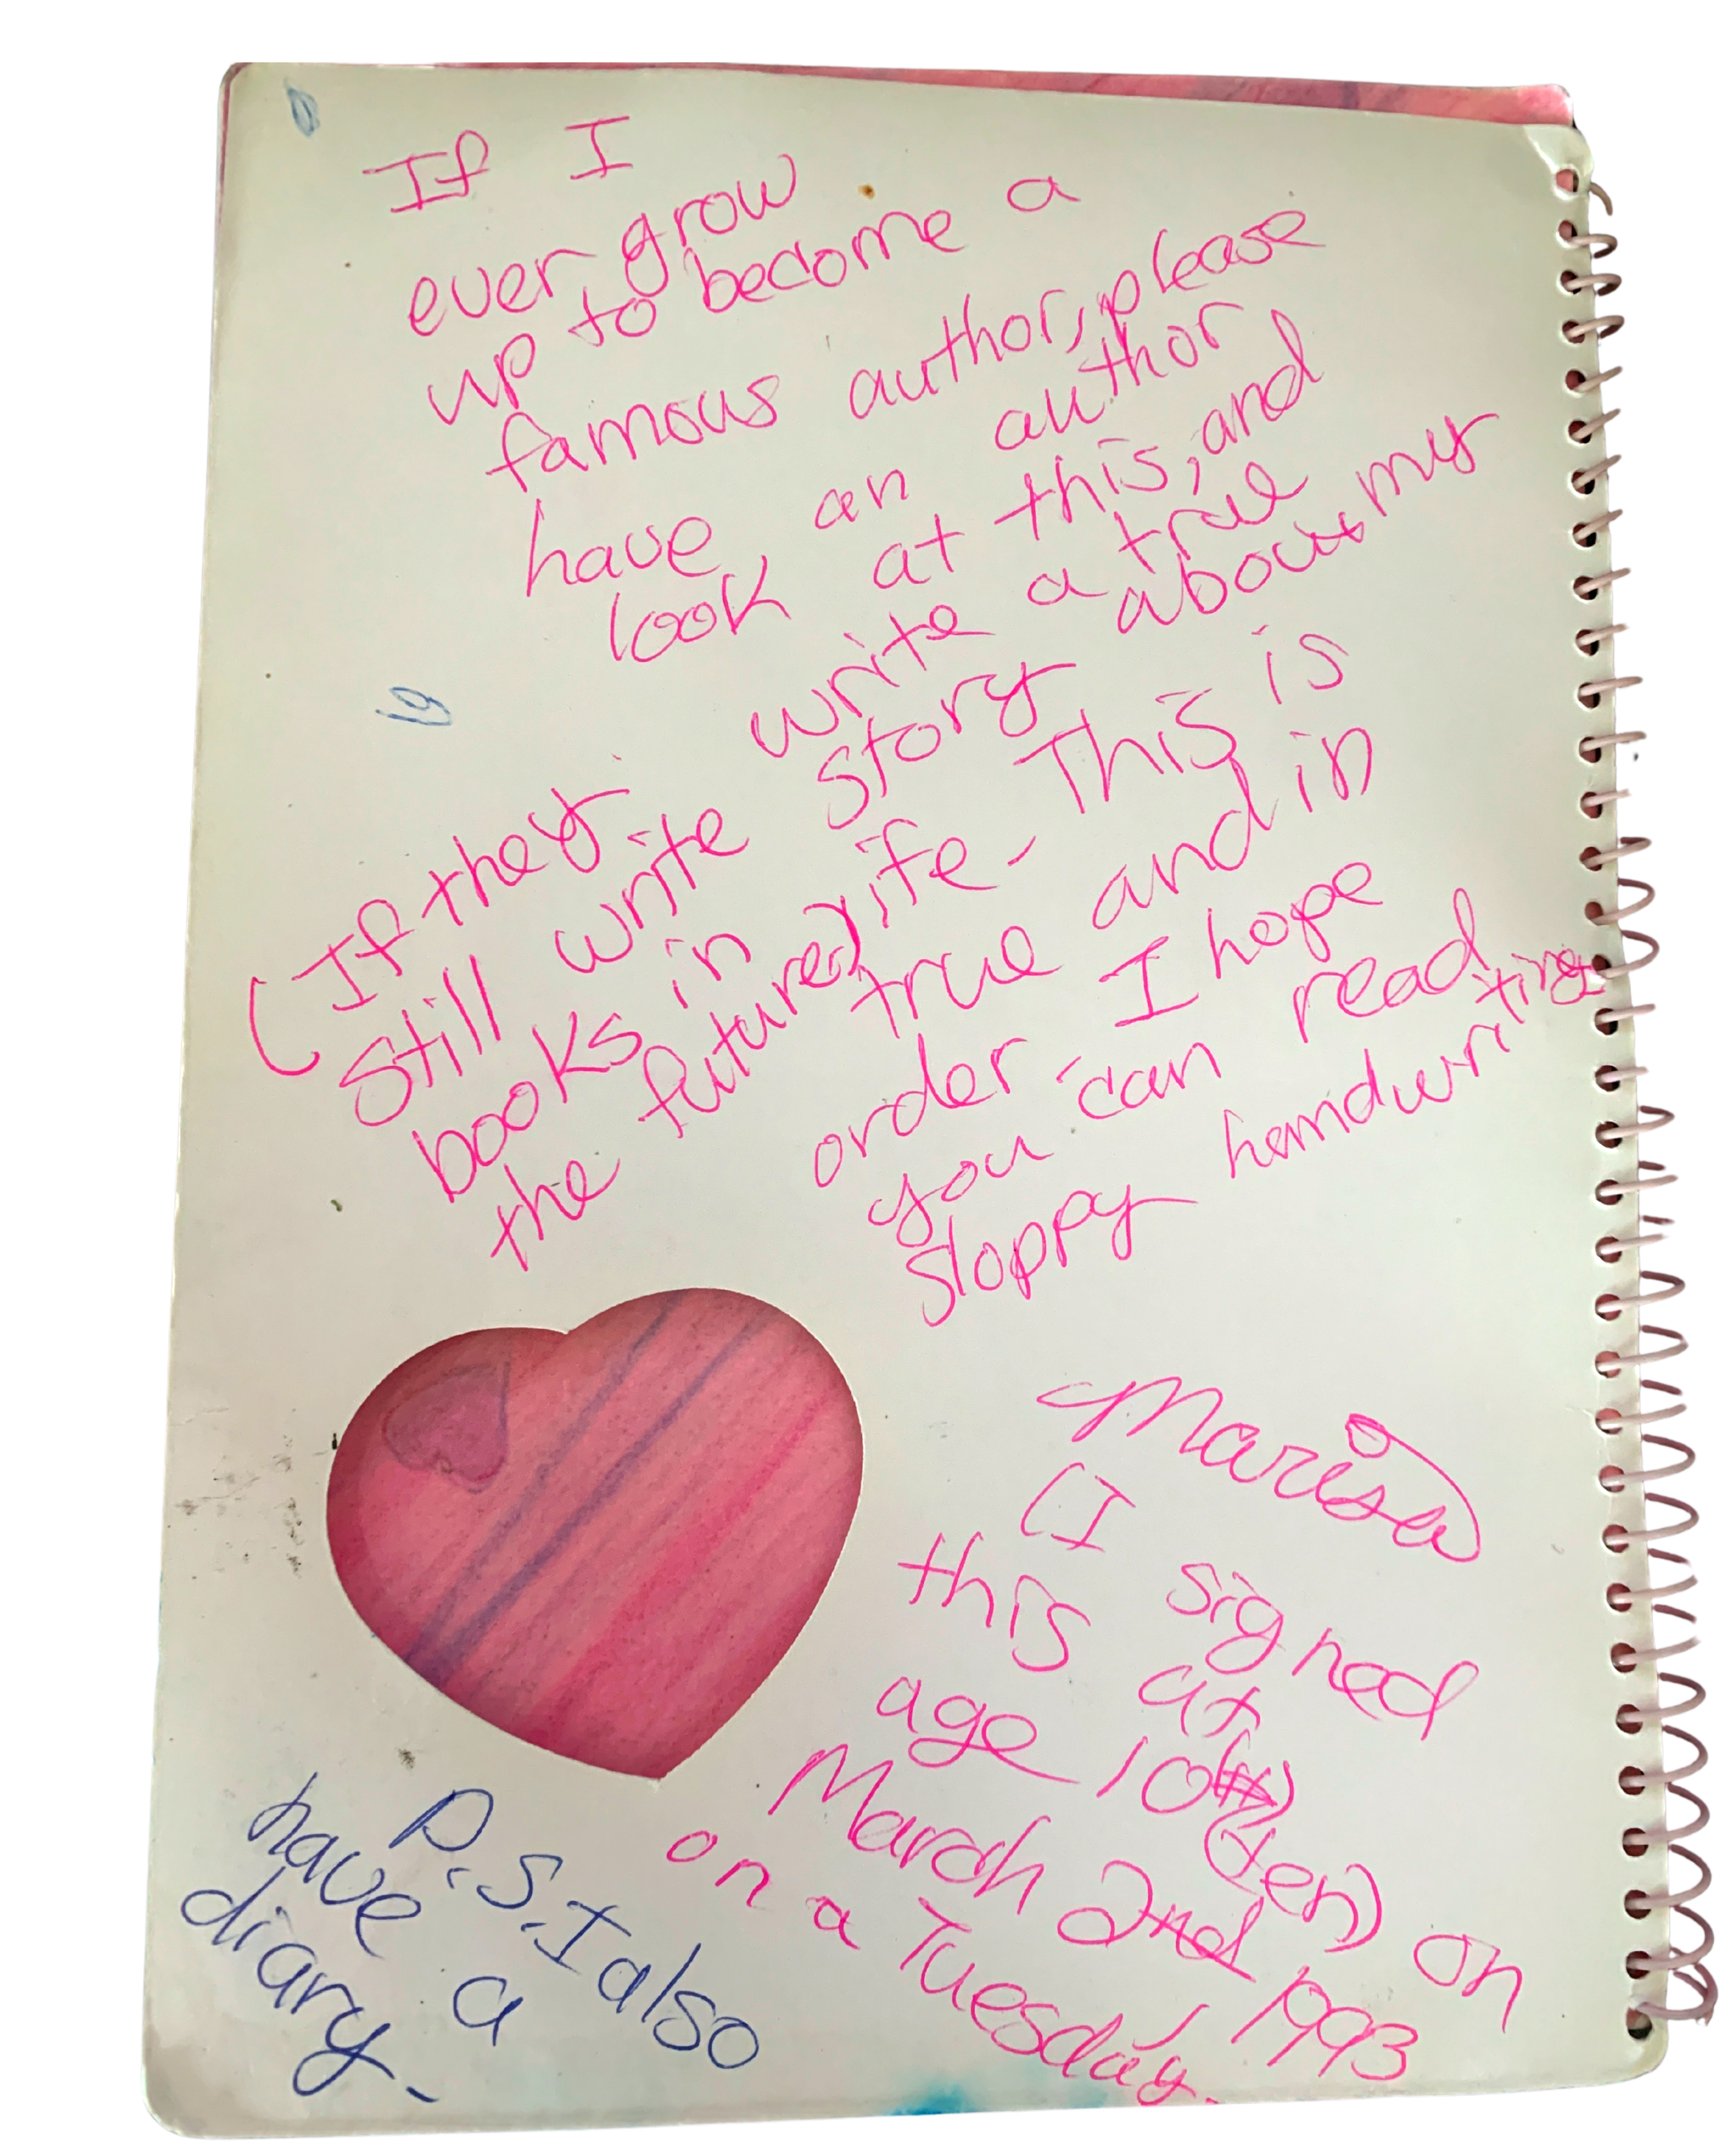 If I
ever grow
up to become a
famous author, please
have an author
look at this, and
write a true
story about my
life. This is
true and in
order. I hope
you can read
sloppy handwriting
(If they
still write
books in
the future)
Marisa
(I signed
this at
age 10
(ten) on
March 2nd, 1993
on a Tuesday.
P.S. I also
have a
diary.